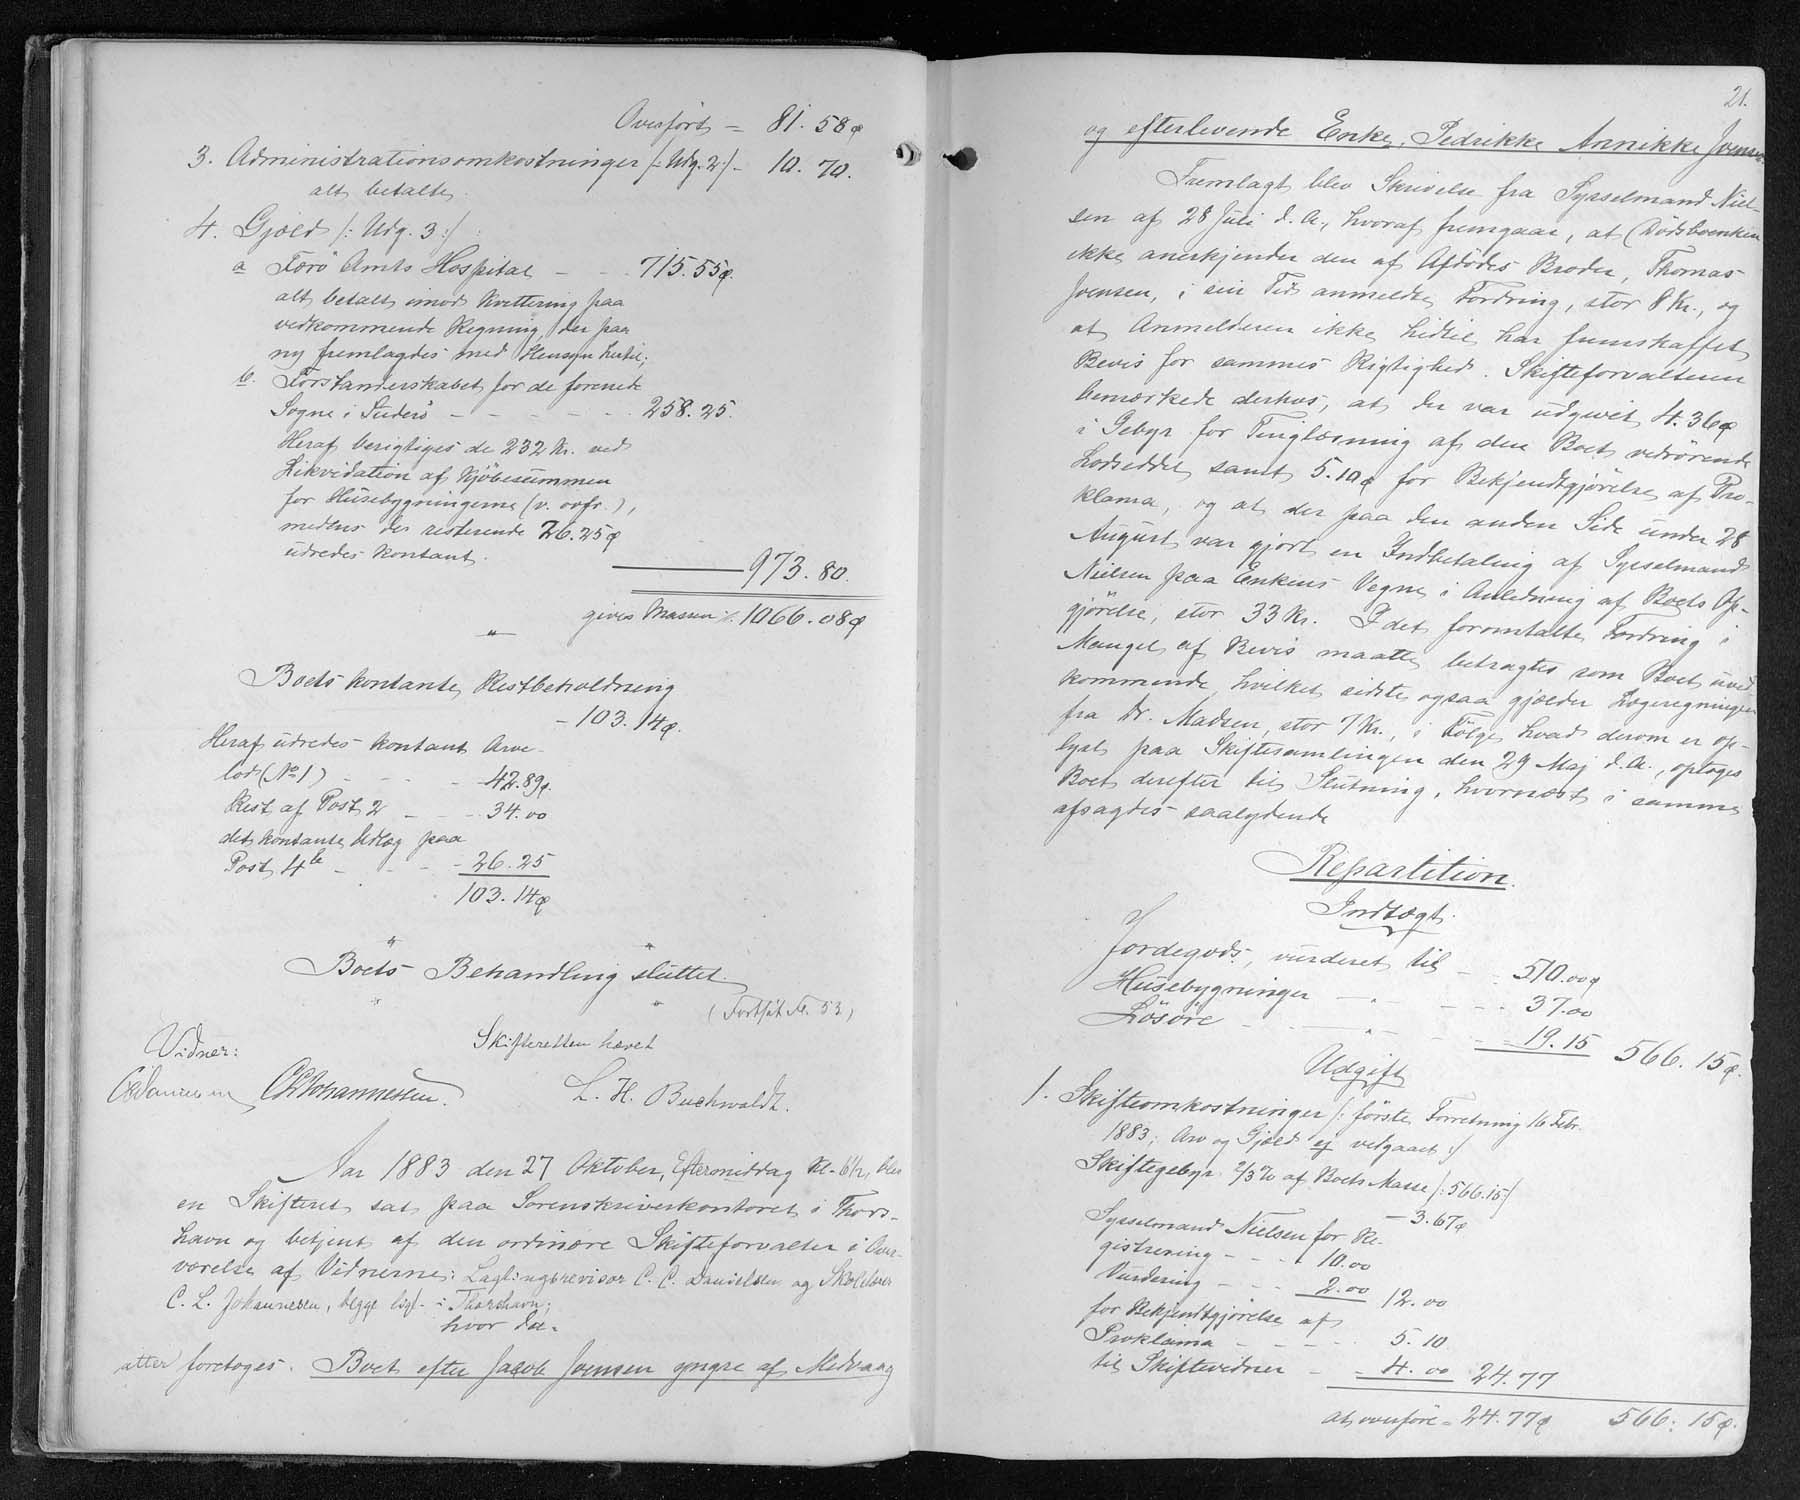 Overført = 81. 58 ø
3. Administrationsomkostninger /: Udg. 2 :/ - 10. 70.
alt betalte.
4. Gjæld /: Udg. 3 :/
a Færö Amts Hospital - - 715. 55 ø.
alt betalt imod Kvittering paa
vedkommende Regning, der paa
ny fremlagdes med Hensyn hertil;
b. Forstanderskabet for de forenede
Sogne i Suderö - - - - - 258. 25.
Heraf berigtiges de 232 Kr. ved
Likvidation af Kjöbesummen
for Husebygningerne (v. ovfr.),
medens de resterende 26. 25 ø
udredes kontant.
973. 80.
giver Massen ·/. 1066. 08 ø
"
Boets kontante Restbeholdning
- 103. 14 ø.
Heraf udredes kontant Arve-
lod (No 1) - - - - 42. 89 ø.
Rest af Post 2 - - - 34. 00
det kontante Udlæg paa
Post 4 b - - - - 26. 25
103. 14 ø
" "
Boets Behandling sluttet.
" "
(Fortsat Fl. 53)
Vidner: Skifteretten hævet
CCDanielsen CLJohannesen. L. H. Buchwaldt.
Aar 1883 den 27 Oktober, Eftermiddag Kl. 6½, blev
en Skifteret sat paa Sorenskriverkontoret i Thors-
havn og betjent af den ordinære Skifteforvalter i Over-
værelse af Vidnerne: Lagtingsrevisor C. C. Danielsen og Skolelærer
C. L. Johannesen, begge bigl. i Thorshavn;
hvor da -
atter foretoges. Boet efter Jacob Joensen yngre af Midvaag
21.
og efterlevende Enke, Pedrikke Annikke Joensen.
Fremlagt blev Skrivelse fra Sysselmand Niel-
sen af 28 Juli d. A., hvoraf fremgaar, at Dödsboenken
ikke anerkjender den af Afdödes Broder, Thomas
Joensen, i sin Tid anmeldte Fordring, stor 8 Kr., og
at Anmelderen ikke hidtil har fremskaffet
Bevis for sammes Rigtighed. Skifteforvalteren
bemærkede derhos, at der var udgivet 4. 36 ø
i Gebyr for Tinglæsning af den Boet vedrörende
Lodseddel samt 5. 10 ø for Bekjendtgjörelse af Pro-
klama, og at der paa den anden Side under 28
August var gjort en Indbetaling af Sysselmand
Nielsen paa Enkens Vegne i Anledning af Boets Op-
gjörelse, stor 33 Kr. I det foromtalte Fordring i
Mangel af Bevis maatte betragtes som Boet uved-
kommende, hvilket sidste ogsaa gjælder Lægeregningen
fra Dr. Madsen, stor 7 Kr., i Fölge hvad derom er op-
lyst paa Skiftesamlingen den 29 Maj d. A., optoges
Boet derefter til Slutning, hvornæst i samme
afsagdes saalydende
Repartition.
Indtægt.
Jordegods, vurderet til - - 510. 00 ø
Husebygninger - " - - - 37. 00
Lösöre - - - " - - - 19. 15 566. 15 ø.
Udgift
1. Skifteomkostninger /: förste Forretning 16 Febr.
1883; Arv og Gjæld ej vedgaaet :/
Skiftegebyr 2/3 % af Boets Masse /: 566. 15 :/
- 3. 67 ø
Sysselmand Nielsen for Re-
gistrering - - - 10. 00
Vurdering - - - 2. 00 12. 00
for Bekjendtgjörelse af
Proklama - - - - 5. 10
til Skiftevidner - - 4. 00 24. 77
at overföre = 24. 77 ø 566. 15 ø.